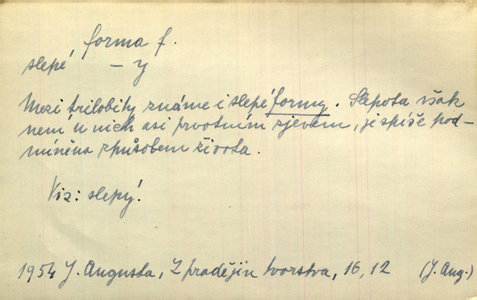 forma f.
slepé – y
Mezi trilobity známe i slepé formy. Slepota však
není u nich asi prvotním zjevem, je spíše pod-
míněna způsobem života.
Viz: slepý!
1954 J. Augusta, Z pradějin tvorstva, 16, 12 (J. Aug.)